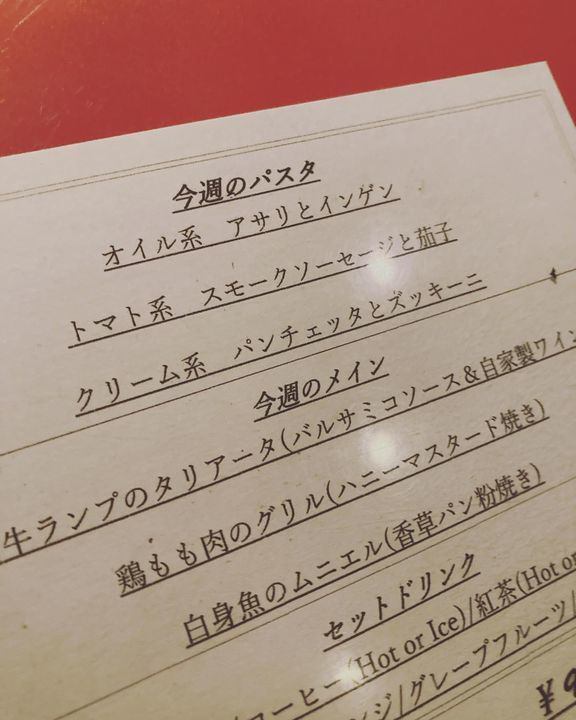 今週のパスタ
オイル系 アサリとインゲン
トマト系 スモークソーセージと茄子
クリーム系 パンチェッタとズッキーニ
今週のメイン
牛ランプのタリアータ(バルサミコソース&自家製ワイン
鶏もも肉のグリル(ハニーマスタード焼き)
白身魚のムニエル(香草パン粉焼き)
セットドリンク
コーヒー(Hot or Ice)/紅茶(Hot or
ンジ/グレープフルーツ/
¥9